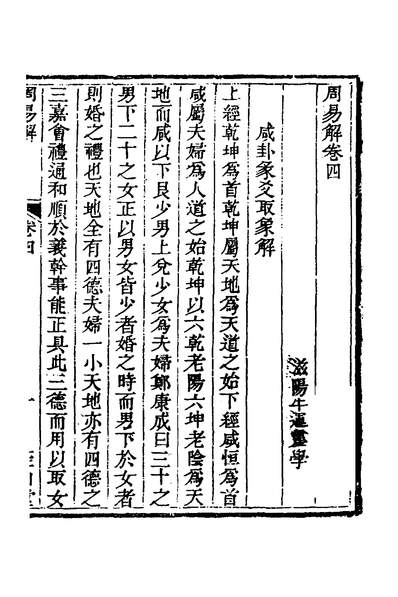 周易解卷四
滋陽牛運震學
咸卦彖爻取象解
上經乾坤為首乾坤屬天地為天道之始下經咸恒為首
咸屬夫婦為人道之始乾坤以六乾老陽六坤老陰為天
地而咸以下艮少男上兌少女為夫婦鄭康成曰三十之
男下二十之女正以男女皆少者婚之時而男下於女者
則婚之禮也天地全有四德夫婦一小天地亦有四德之
三嘉會禮通和順於義幹事能正具此三德而用以取女
周易解
卷四
一
山堂